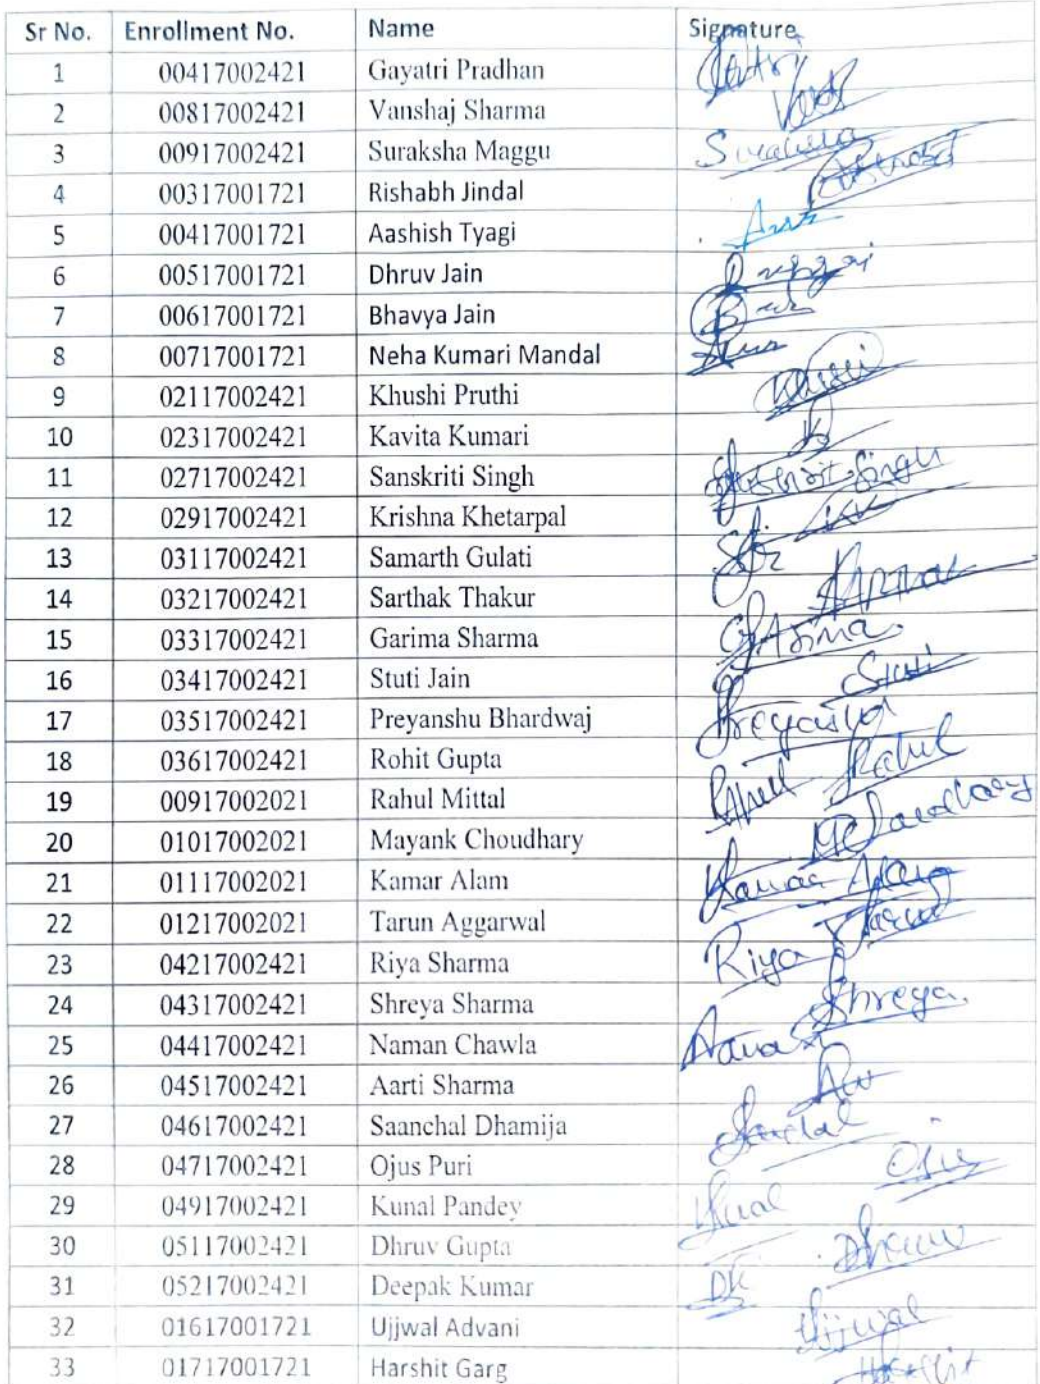 Sr No. Enrollment No. Name Signature
1 00417002421 Gayatri Pradhan
2 00817002421 Vanshaj Sharma
3 00917002421 Suraksha Maggu
4 00317001721 Rishabh Jindal
5 00417001721 Aashish Tyagi
6 00517001721 Dhruv Jain
7 00617001721 Bhavya Jain
8 00717001721 Neha Kumari Mandal
9 02117002421 Khushi Pruthi
10 02317002421 Kavita Kumari
11 02717002421 Sanskriti Singh
12 02917002421 Krishna Khetarpal
13 03117002421 Samarth Gulati
14 03217002421 Sarthak Thakur
15 03317002421 Garima Sharma
16 03417002421 Stuti Jain Stuti
17 03517002421 Preyanshu Bhardwaj
18 03617002421 Rohit Gupta
19 00917002021 Rahul Mittal Rahul
20 01017002021 Mayank Choudhary
21 01117002021 Kamar Alam
22 01217002021 Tarun Aggarwal
23 04217002421 Riya Sharma Riya
24 04317002421 Shreya Sharma Shreya.
25 04417002421 Naman Chawla
26 04517002421 Aarti Sharma
27 04617002421 Saanchal Dhamija
28 04717002421 Ojus Puri
29 04917002421 Kunal Pandey
30 05117002421 Dhruv Gupta
31 05217002421 Deepak Kumar DK
32 01617001721 Ujjwal Advani Ujjwal
33 01717001721 Harshit Garg Harshit